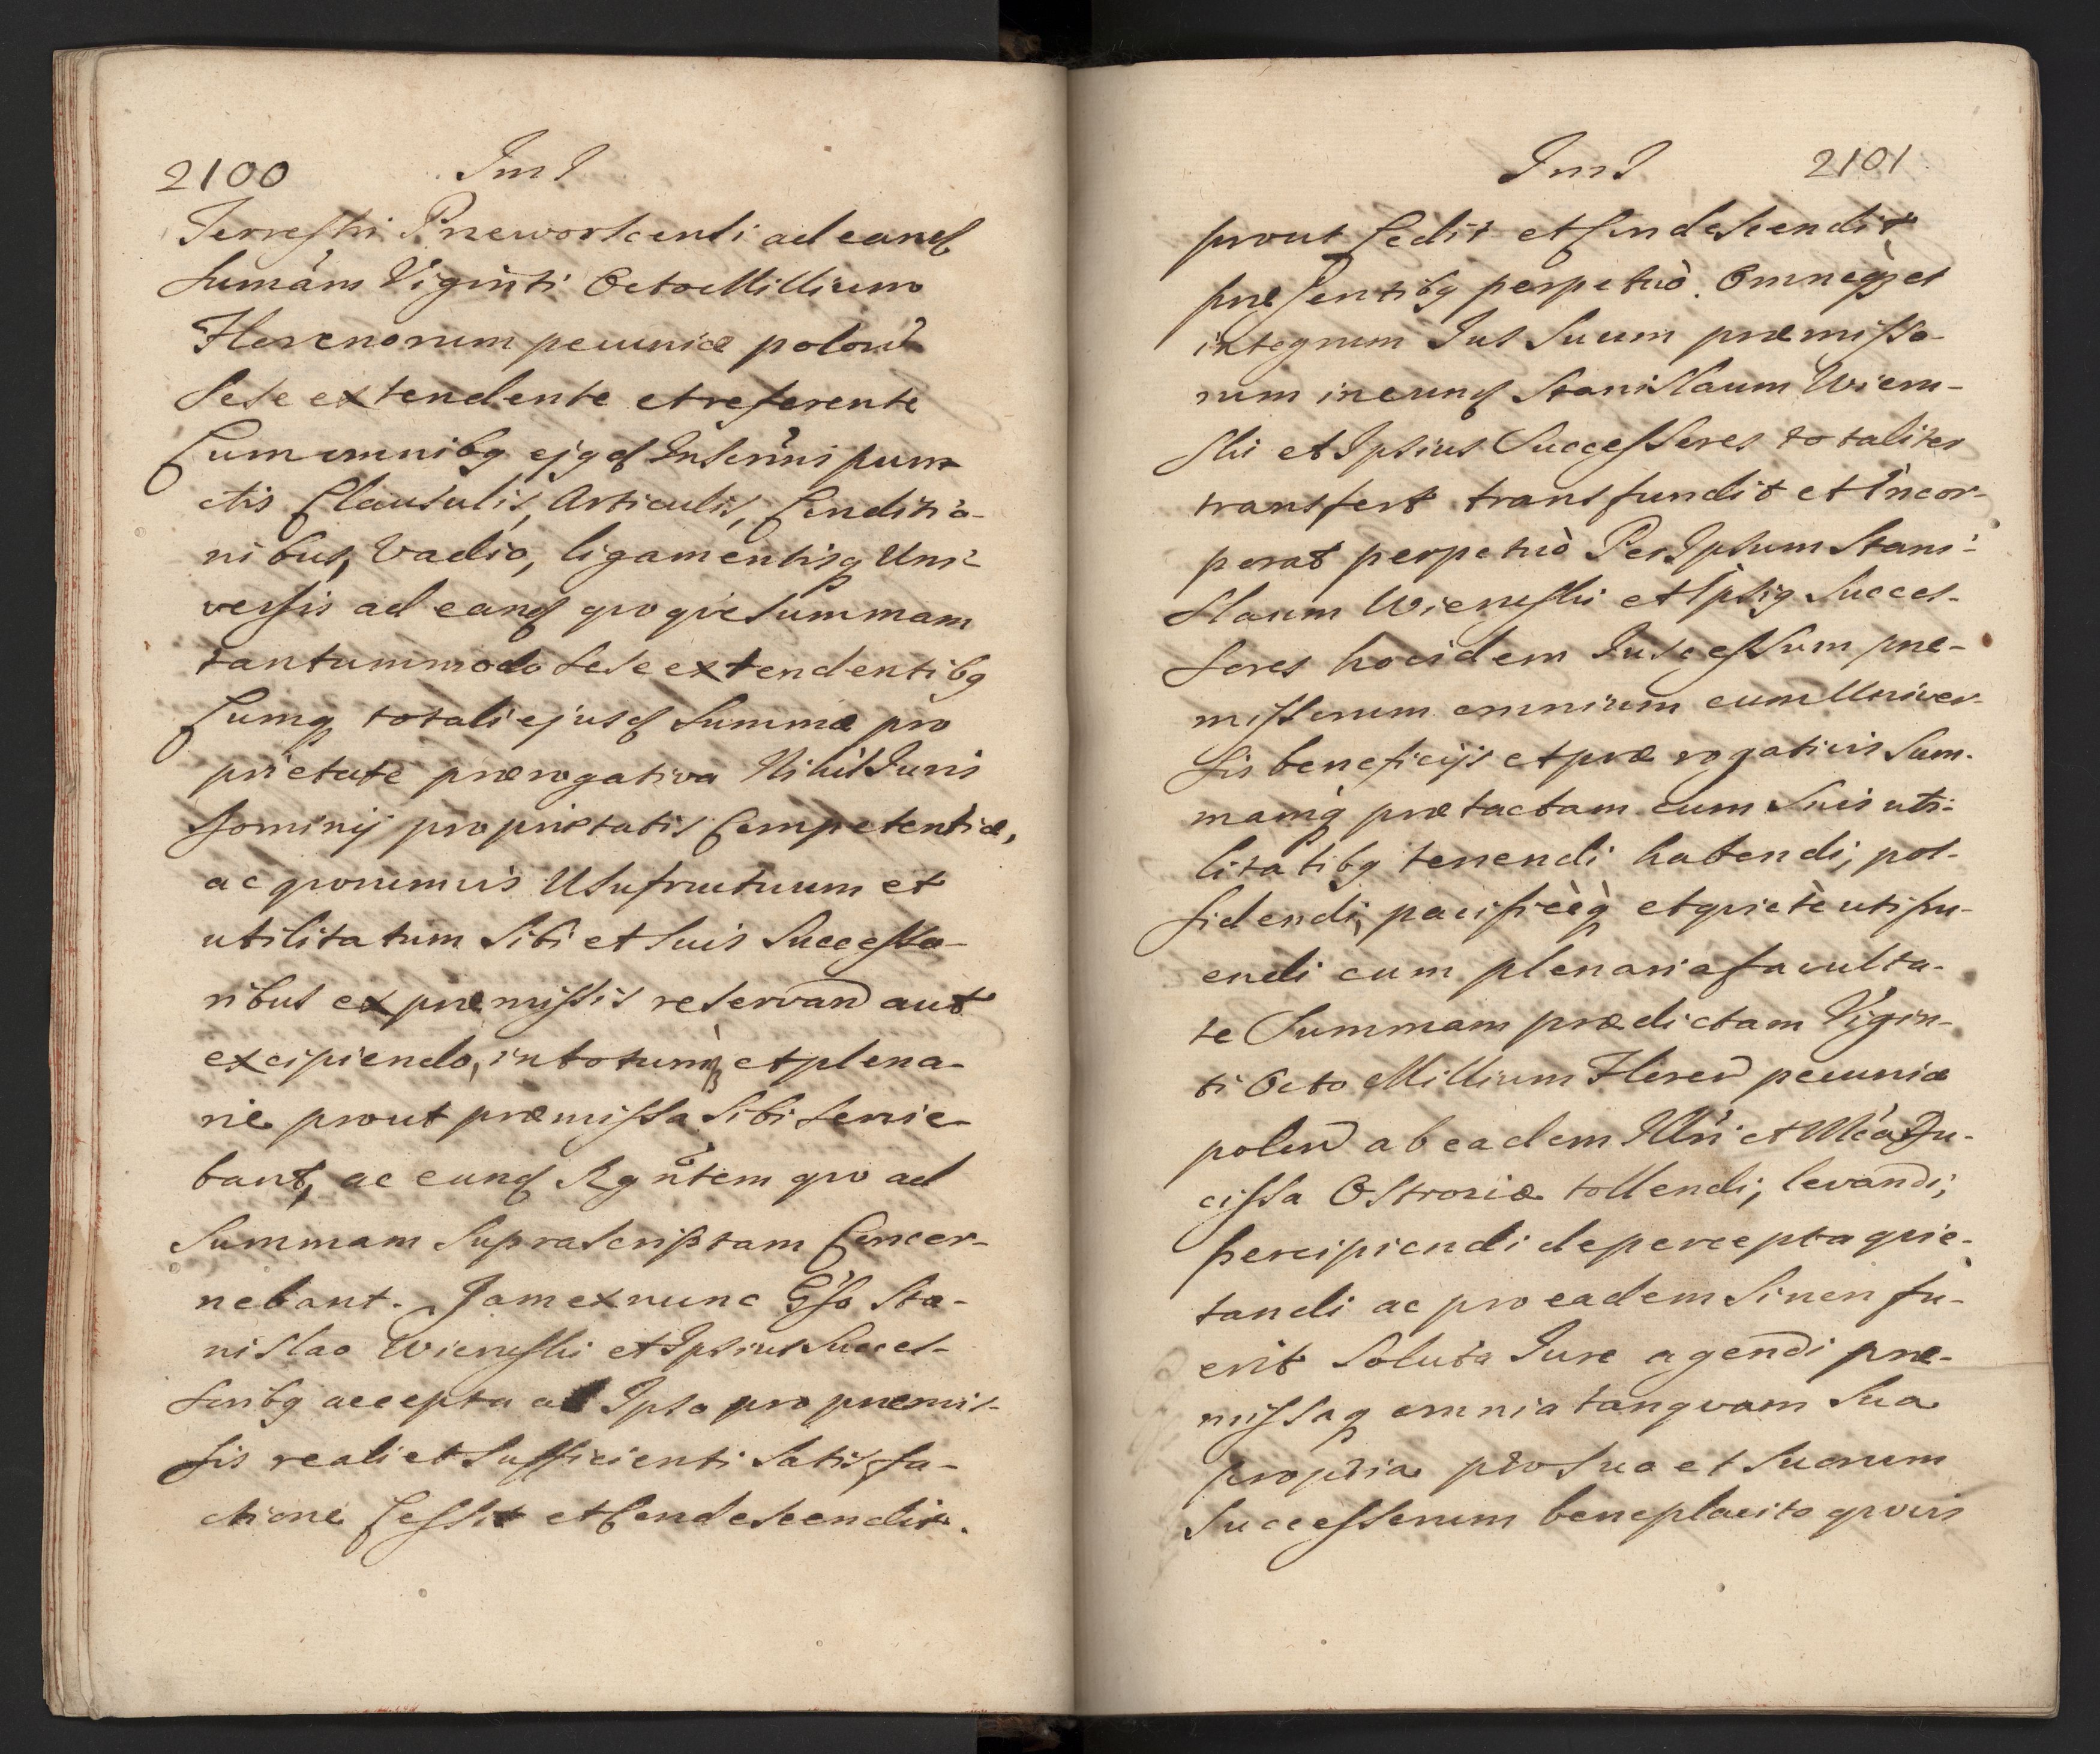 2100 Im I
Terrestri Przeworscensi ad eand
Sumam Viginti Octo Millium
Florenorum pecuniæ polon
sese extendente et referente
Cum omnibq ejqd Inscrîni pun
ctis Clausulis, Articulis, Conditio-
nibus, Vadio, ligamentisq Uni-
versis ad eand quoque Summam
tantummodo sese extendentibq
Cumq totali ejusd Summæ pro
prietate prærogativa Nihil Juris
Dominij proprietatis Competentiæ,
ac quorumvis Usufructuum et
utilitatum Sibi et Suis Successo-
ribus ex præmissis reservand aut
excipiendo, in totumq et plena-
rie prout præmissa Sibi Servie-
bant, ac eund Rgntem quo ad
Summam Suprascriptam Concer-
nebant. Jam ex nunc Gso Sta-
nislao Wierzski et Ipsius Succes-
soribq accepta ab Ipso pro præmis-
sis reali et Sufficienti Satisfa-
ctione Cessit et Condescendit.
Im I 2101
prout Cedit et Condescendit
præsentibq perpetuò. Omneq et
integrum Jus Suum præmisso-
rum in eund Stanislaum Wierz-
ski et Ipsius Successores totaliter
transfert transfundit et Incor-
porat perpetuò Per Ipsum Stani-
slaum Wierzski et Ipsiq Succes-
sores hoc idem Jus cessum præ-
missorum omnium cum Univer-
sis beneficijs et prærogativis Sum-
mamq prætactam cum Suis uti-
litatibq tenendi habendi, pos-
sidendi, pacificèq et quietè utifru-
endi cum plenaria faculta-
te Summam prædictam Vigin-
ti Octo Millium Floren pecuniæ
polon ab eadem Illri et Mca Du-
cissa Ostrogiæ tollendi, levandi,
percipiendi de percepta quie-
tandi ac pro eadem Si non fu-
erit Soluta Jure agendi præ-
missaq omnia tanquam Sua
propria pro Suo et Suorum
Successorum beneplacito quovis